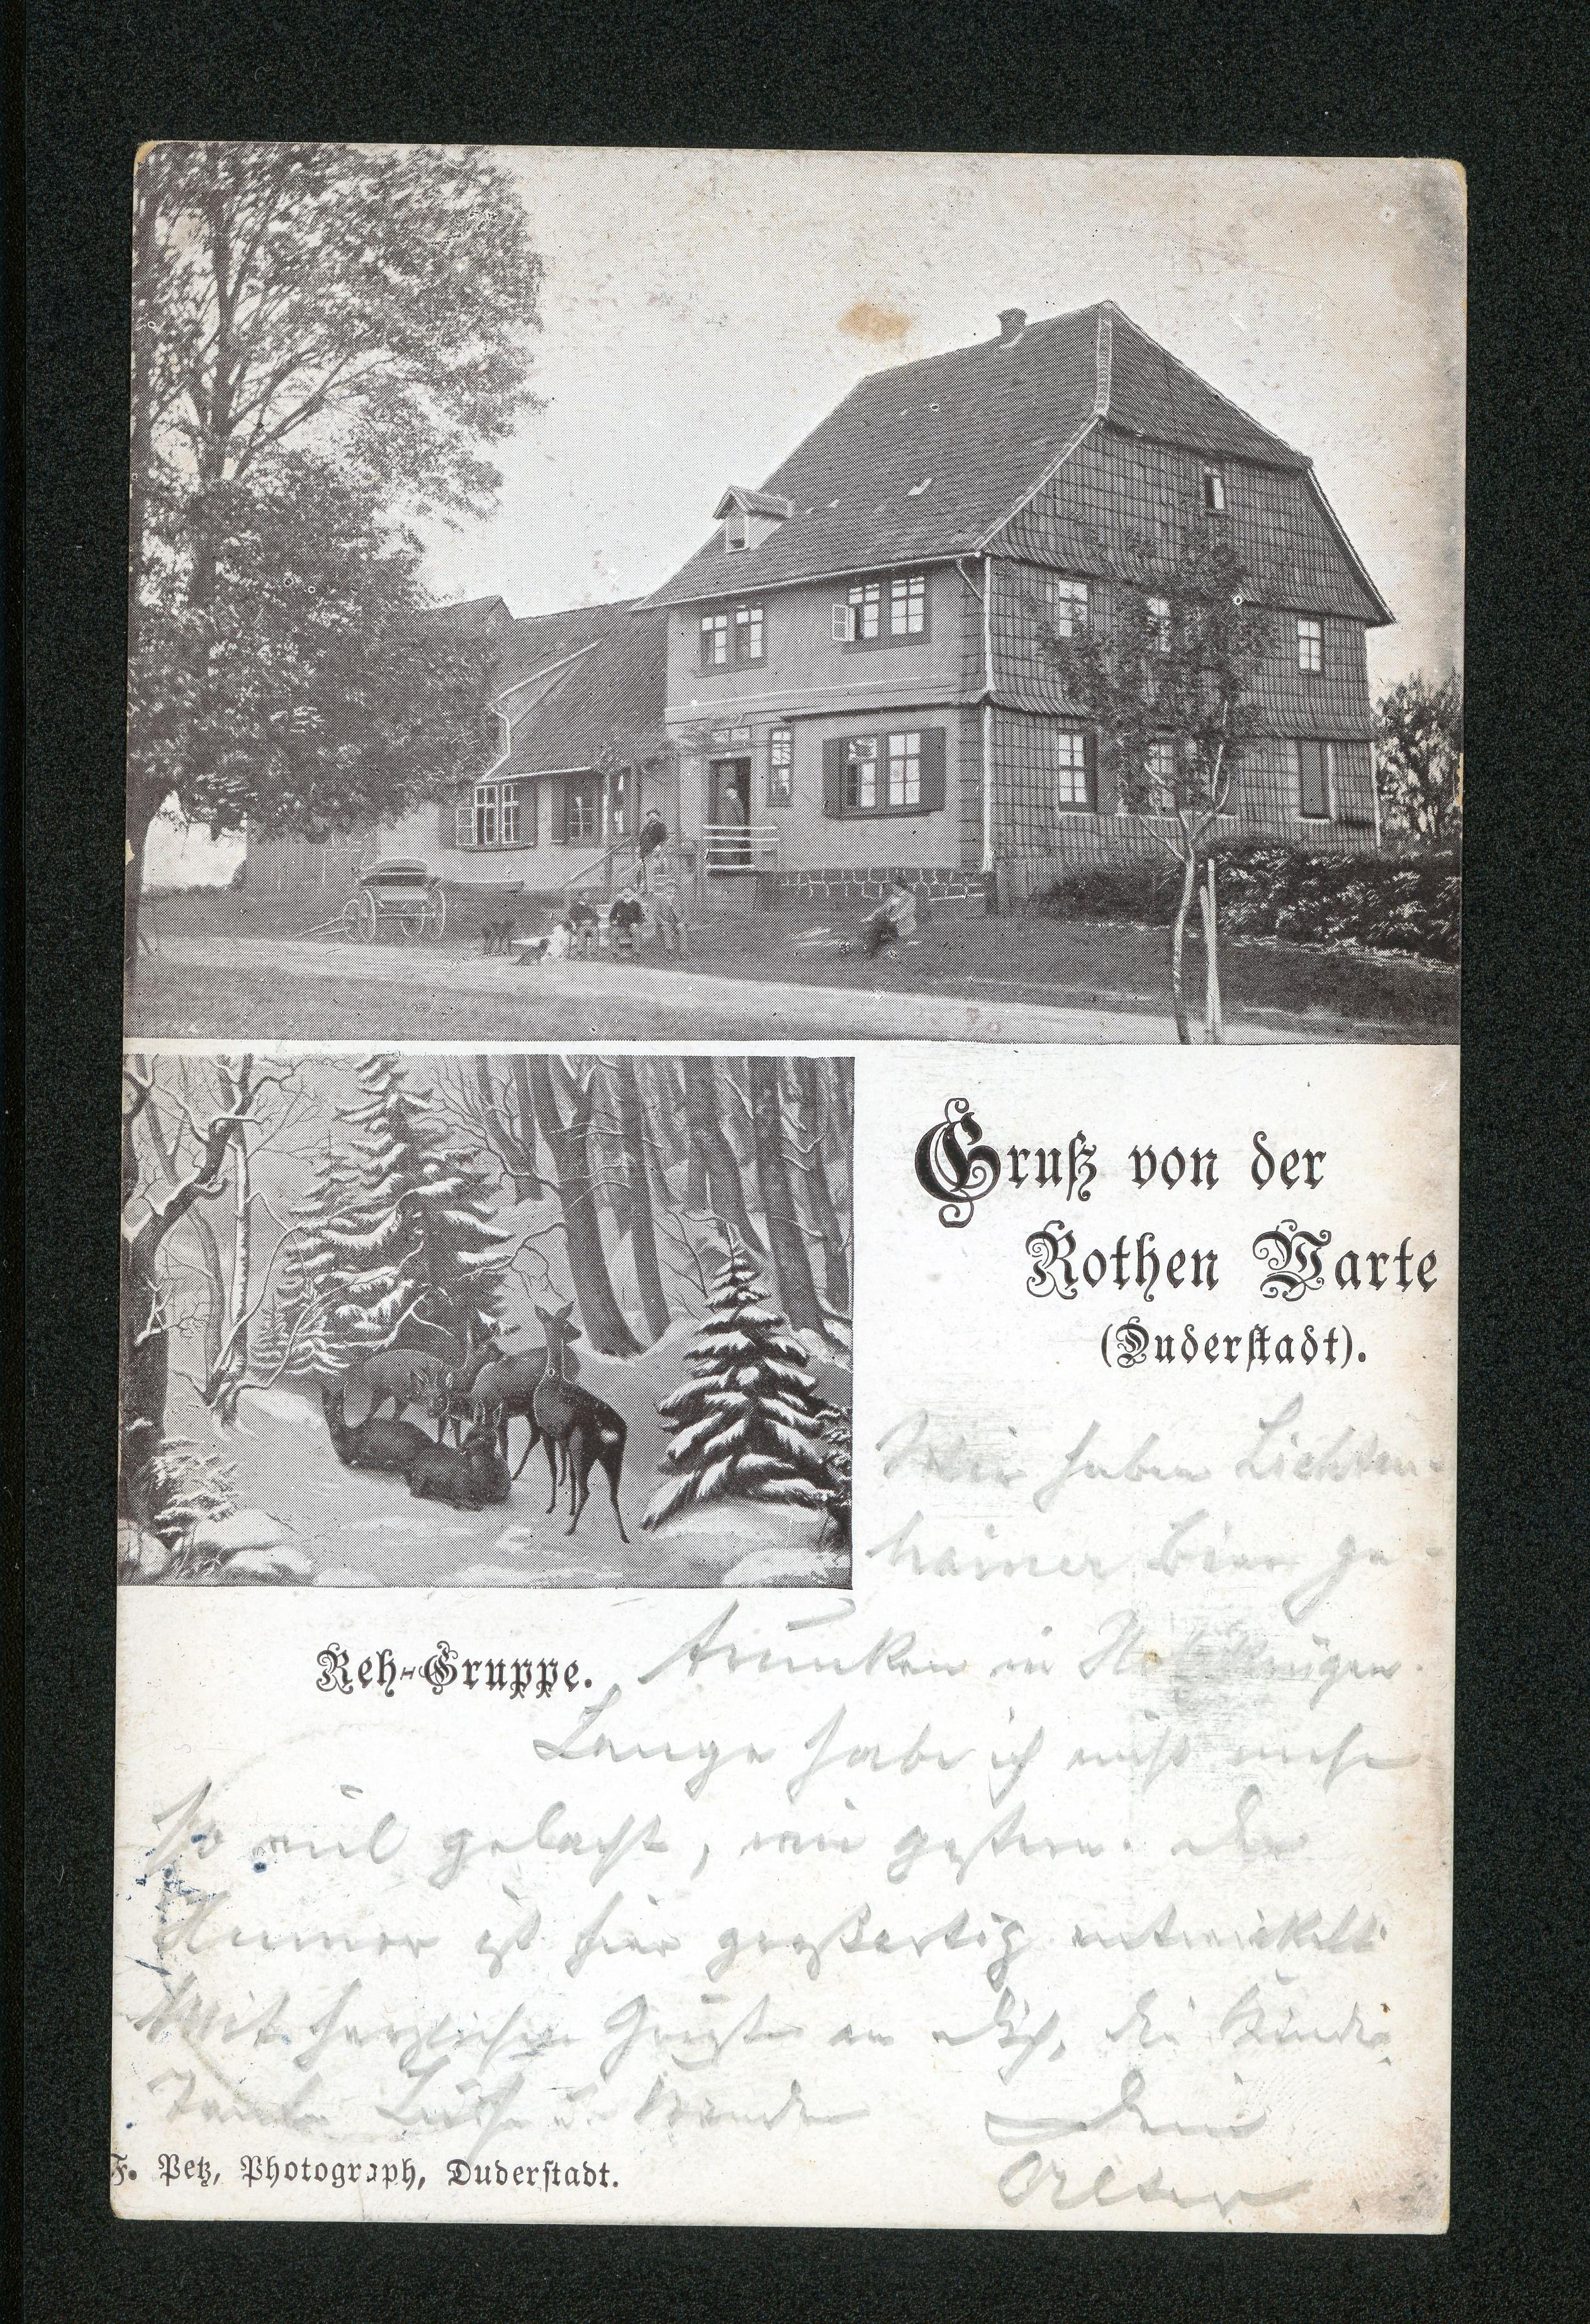 Gruß von der
Rothen Warte
(Duderstadt).
Reh-Gruppe.
Wir haben Lichten-
hainer Bier ge-
trunken in Holzkrügen.
Lange habe ich nicht mehr
so viel gelacht, wie gestern. Der
Humor ist hier großartig entwickelt.
Mit herzlichen Grüßen an Dich, die Kinder,
Tante Luise u.
Dein
F. Petz, Photograph, Duderstadt.